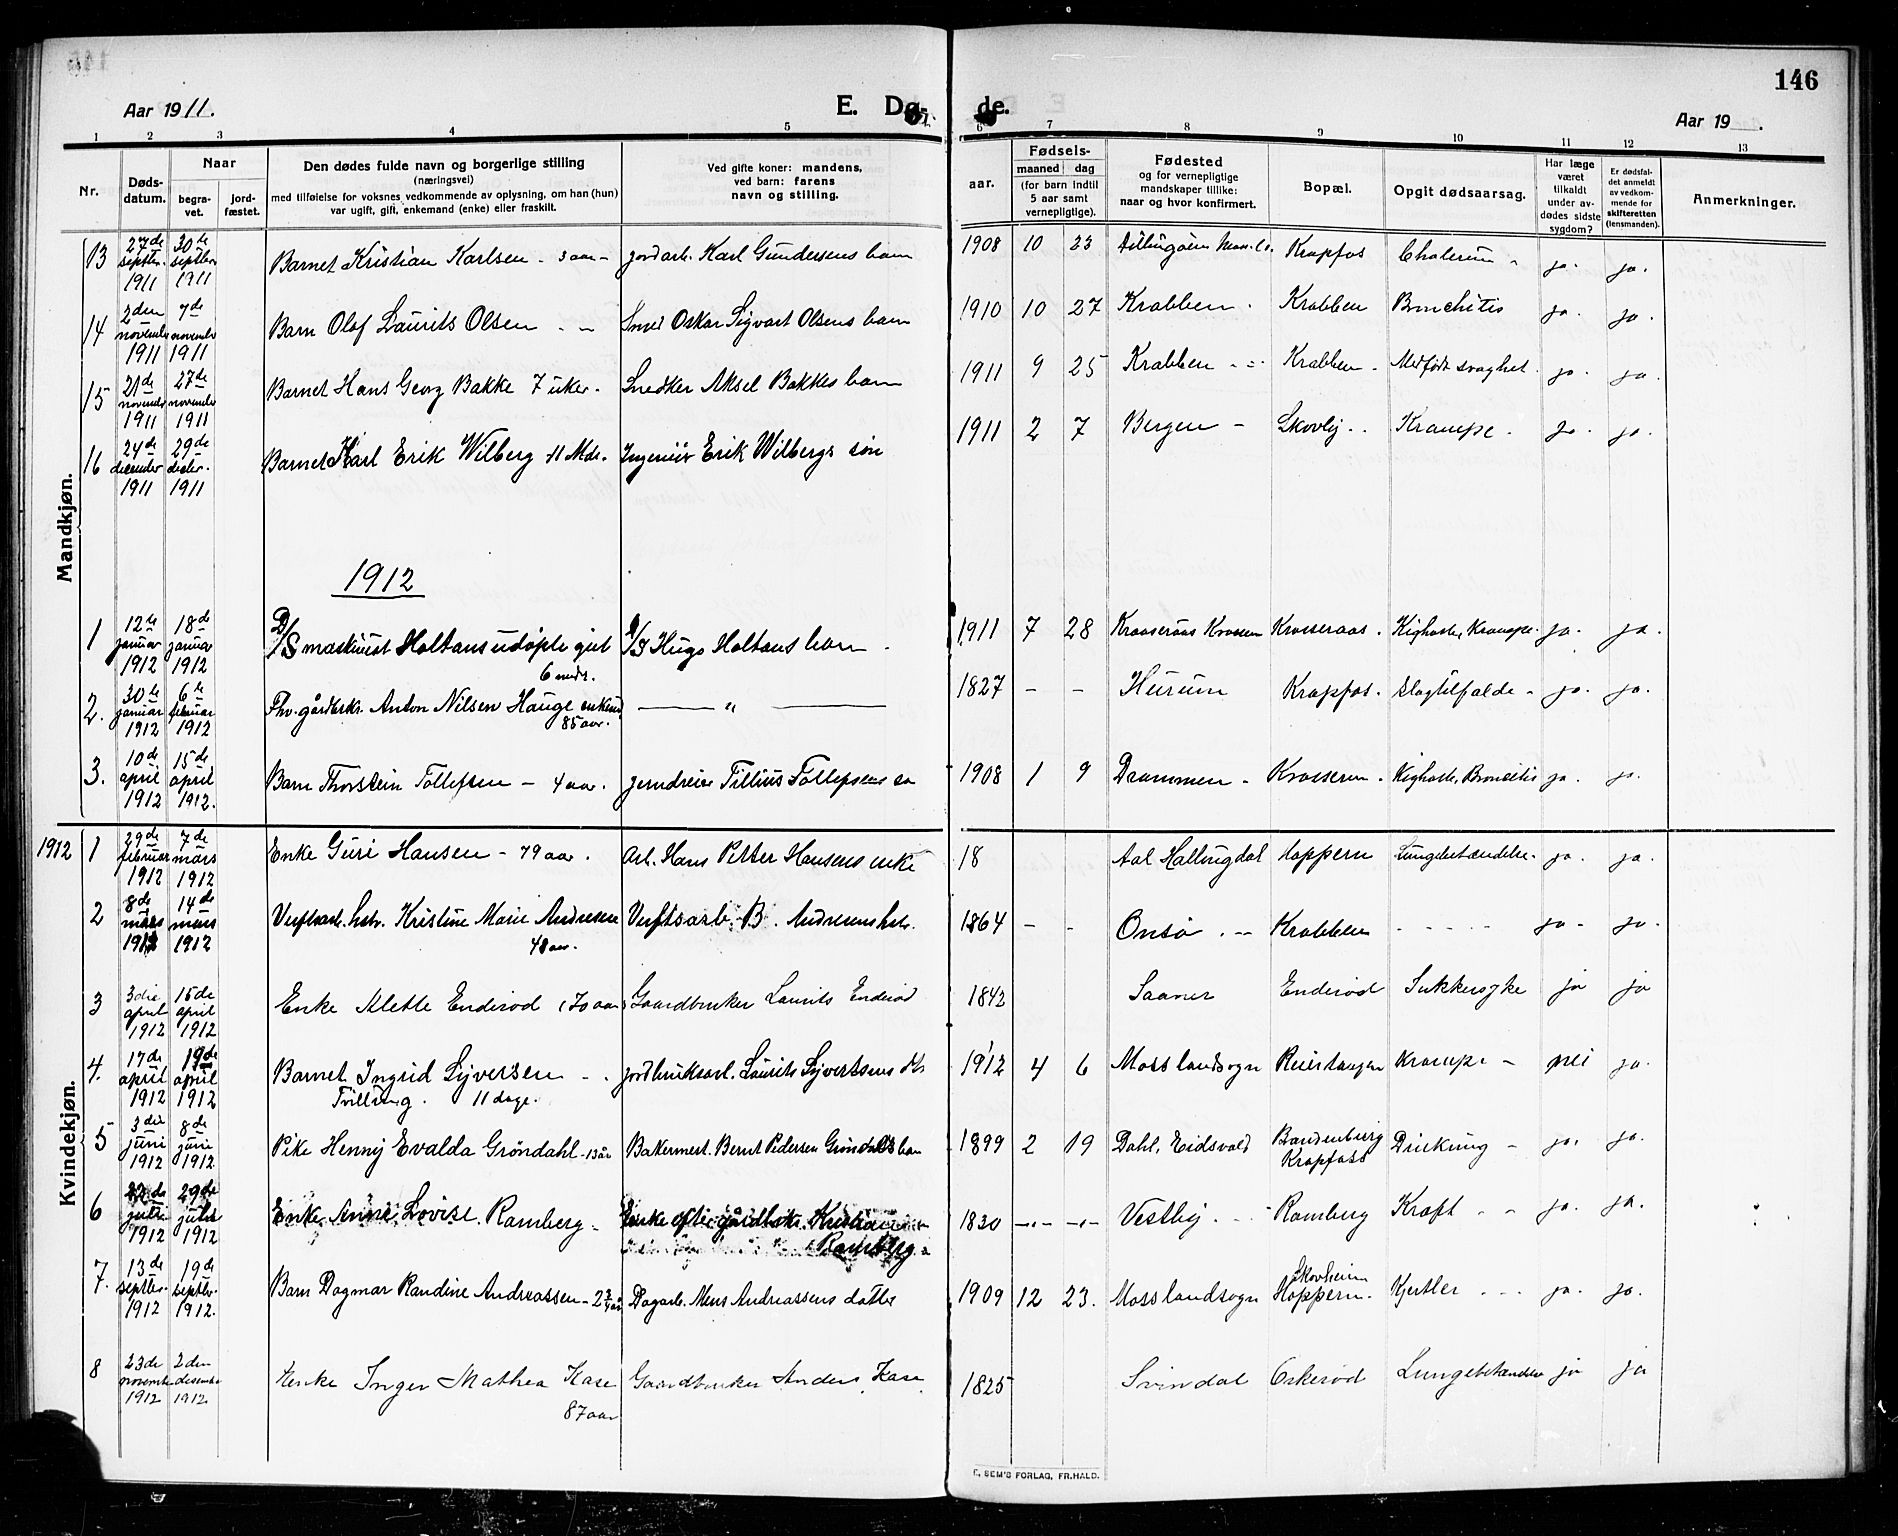 146
Aar 1911.
E. Dø-
de.
Aar 19 .
1 2 3 4 5 6 7 8 9 10 11 12 13
Nr.
Døds-
datum.
Naar
begra-
vet.
jord-
fæstet.
Den dødes fulde navn og borgerlige stilling
(næringsvei)
med tilføielse for voksnes vedkommende av oplysning, om han (hun)
var ugift, gift, enkemand (enke) eller fraskilt.
Ved gifte koner: mandens,
ved barn: farens
navn og stilling.
aar.
Fødsels-
maaned dag
(for barn indtil
5 aar samt
vernepligtige).
Fødested
og for vernepligtige
mandskaper tillike:
naar og hvor konfirmert.
Bopæl.
Opgit dødsaarsag.
Har læge
været
tilkaldt
under av-
dødes sidste
sygdom?
Er dødsfal-
det anmeldt
av vedkom-
mende for
skifteretten
(lensmanden).
Anmerkninger.
Mandkjøn.
13 27de septbr. 1911 30te septbr 1911 Barnet Kristian Karlsen - 3 aar - jordarb. Karl Gundersens barn 1908 10 23 Krapfos Cholerum ja. ja.
14 2den november 1911 7de november 1911 Barn Olof Laurits Olsen Smed Oskar Sigvart Olsens barn 1910 10 27 Krabben Krabben Bronchitis ja. ja.
15 21de november 1911 27de november 1911 Barnet Hans Georg Bakke 7 uker. Snedker Aksel Bakkes barn 1911 9 25 Krabben Krabben Medfødt svaghet ja. ja.
16 24de december 1911 29de decbr. 1911 Barnet Karl Erik Wilberg 11 Mdr. Ingeniør Erik Wilbergs søn 1911 2 7 Bergen - Skovly Krampe. ja. ja.
1912
1 12te januar 1912 18de januar 1912 D/S maskinist Holtans udøpte gut 6 mdr. Hugo Holtans barn 1911 7 28 Krosseraas. Kighoste, Krampe. ja. ja.
2. 30te januar 1912 6te februar 1912 Fhv. gårdbrkr. Anton Nilsen Hauge enkem. 85 aar. — " — 1827 - - Hurum Krapfos. Slagtilfælde - ja. ja.
3. 10de april 1912 15de april 1912. Barn Thorstein Tollefsen - 4 aar. jerndreier Tillius Tollefsens 1908 1 9 Drammen - Kighoste, Bronkitis ja. ja.
Kvindekjøn.
1912 1 29de februar 1912 7de mars 1912 Enke Guri Hansen - 79 aar. Arb. Hans Petter Hansens enke 18 Aal Hallingdal Hoppern Lungebetændelse. ja. ja.
2 8de mars 1912 14de mars 1912 Verftsarb. hstr. Kristine Marie Andresen 48 aar. Verftsarb. B. Andresens hstr. 1864 - - Onsø Krabben ja - ja.
3 3die april 1912 15de april 1912 Enke Alette Enderød (70 aar) Gaardbruker Laurits Enderød 1842 Saaner Enderød Sukkersyke ja ja
4. 17de april 1912 19de april 1912 Barnet Ingrid Syversen Tvilling. 11 dage. jordbruksarb. Laurits Syvertsens dtr 1912 4 6 Moss landsogn Reiertangen Krampe - nei ja.
5 3die juni 1912 8de juni 1912 Pike Henny Evalda Grøndahl - 13 år Bakermest. Bernt Pedersen Grøndahls barn 1899 2 19 Dahl, Eidsvold Brandenburg Krapfoss Drukning - ja. ja.
6 juli 1912 29de juli 1912 Enke Anne Lovise Ramberg - Enke efter gårdbrkr. Ramberg 1830 Vestby Ramberg Kræft ja. ja.
7. 13de septbr. 1912 19de septbr. 1912. Barn Dagmar Randine Andreassen - Dagarb. Mens Andreassens datter 1909 12 23. Moss landsogn Skovheim Hoppern. Kjertler ja. ja.
8 23de november 1912 2den desember 1912 Henke Inger Mathea Kase 87 aar Gaardbruker Anders Kase 1825 Svindal Eskerød Lungebetændelse ja ja
E. SEM'S FORLAG, FR.HALD.